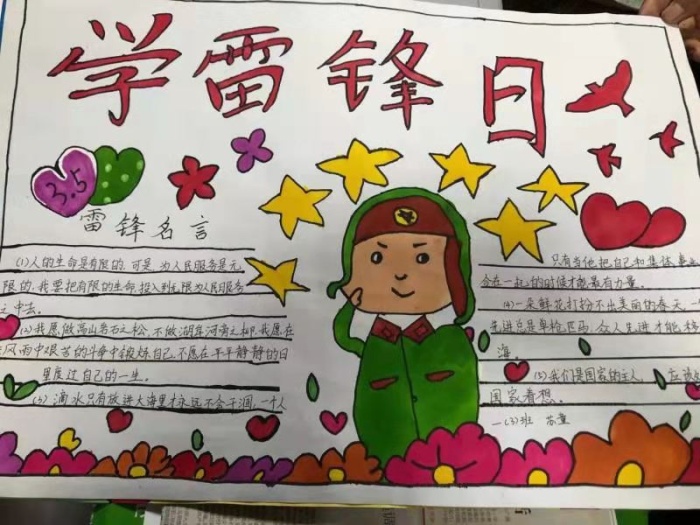 学雷锋日
3.5
雷锋名言
(1)人的生命是有限的.可是 为人民服务是无
限的.我要把有限的生命.投入到无限为人民服务
之中去。
(2)我愿做高山岩石之松,不做湖岸河旁之柳.我愿在
风雨中艰苦的斗争中锻炼自己.不愿在平平静静的日
里度过自己的一生。
(3)滴水只有放进大海里才永远不会干涸.一个人
只有当他把自己和集体事业
合在一起的时候才能最有力量。
(4)一朵鲜花打扮不出美丽的春天,
先进总是单枪匹马,众人先进才能移
海。
(5)我们是国家的主人, 应该
国家着想。
一(3)班 苏童